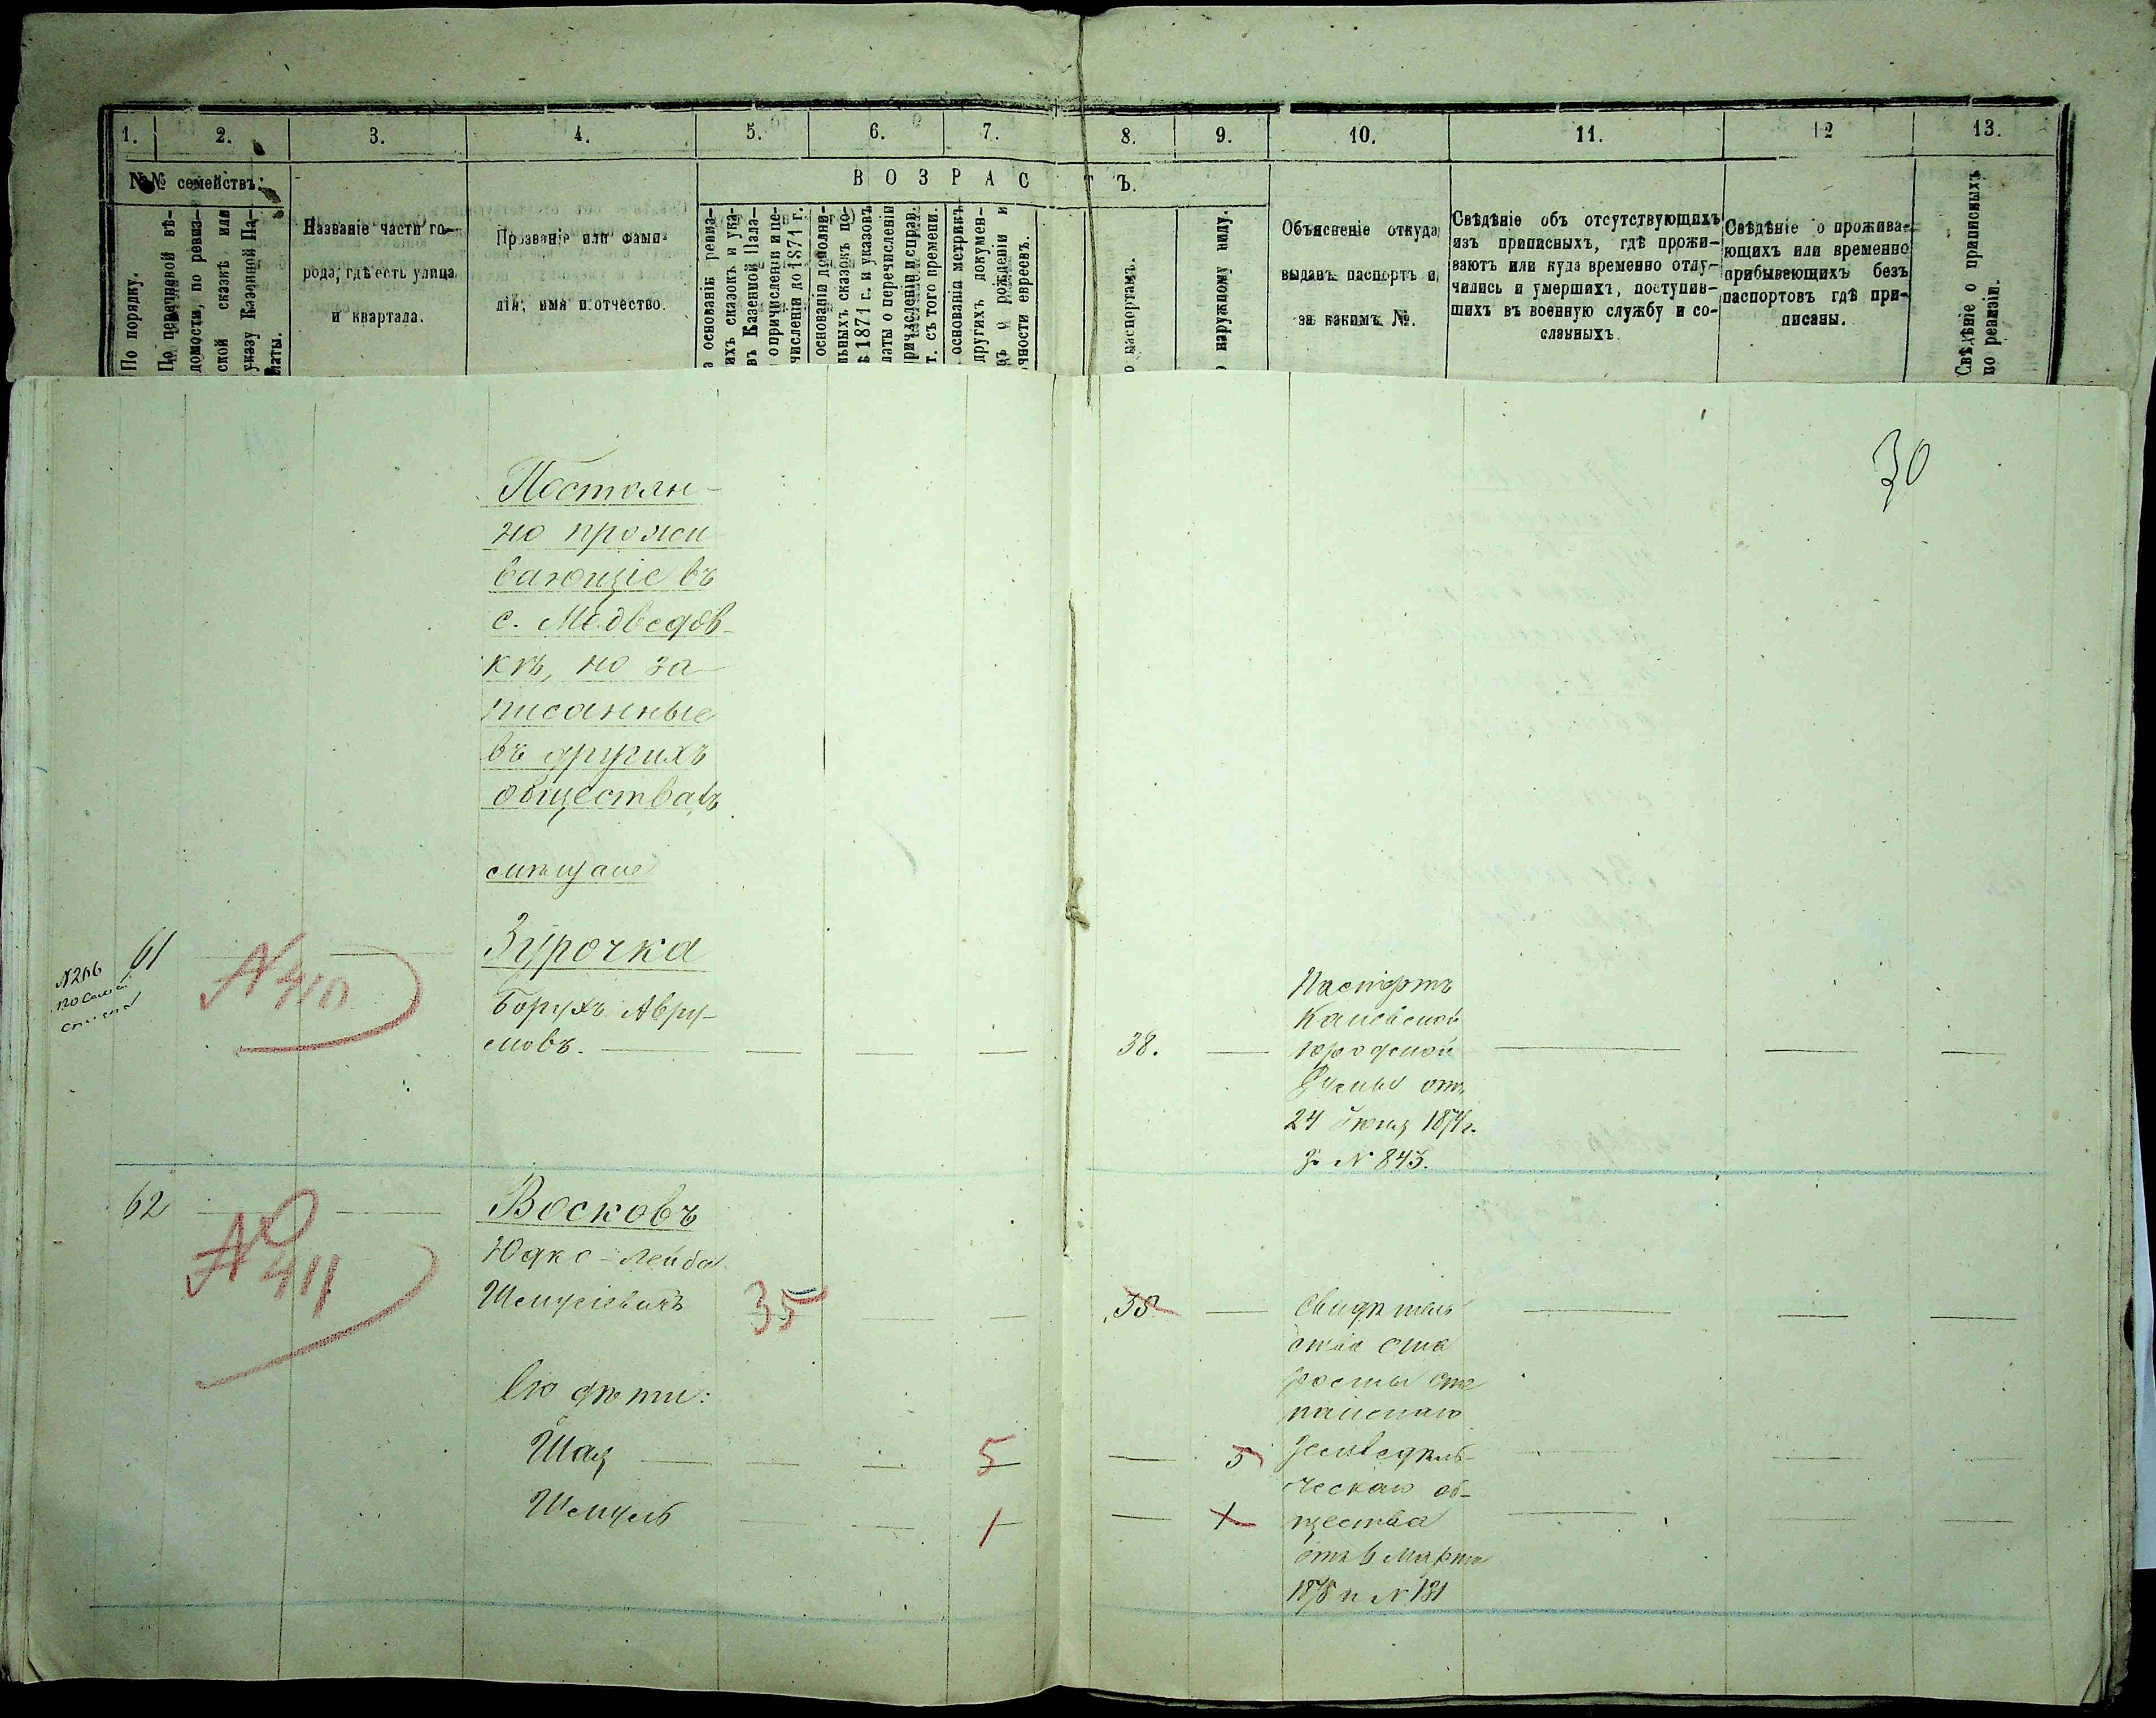 1. 2. 3. 4. 5. 6. 7. 8. 9. 10. 11. 12 13.
№№ семействъ.
В О З Р А С Т Ъ.
По порядку.
По перечневой вѣ-
домости, по ревиз-
ской сказкѣ или
указу Казенной Па-
латы.
Названіе части го-
рода, гдѣ есть улица
и квартала.
Прозваніе или фами-
лія, имя и отчество.
основаніи ревиз-
ихъ сказокъ и ука-
въ Казенной Пала-
о причисленіи и пе-
численіи до 1871 г.
основаніи дополни-
льныхъ сказокъ по-
ѣ 1871 г. и указовъ
латы о перечисленіи
ричисленіи и справ.
т. съ того времени.
основаніи метрикъ
другихъ докумен-
ъ о рожденіи и
чности евреевъ.
о паспортамъ.
наружному виду.
Объясненіе откуда
выданъ паспортъ и
за какимъ №.
Свѣдѣніе объ отсутствующихъ
изъ приписныхъ, гдѣ прожи-
ваютъ или куда временно отлу-
чились и умершихъ, поступив-
шихъ въ военную службу и со-
сланныхъ
Свѣдѣніе о прожива-
ющихъ или временно
прибывеющихъ безъ
паспортовъ гдѣ при-
писаны.
Свѣдѣніе о приписныхъ
по ревизіи.
30
Постоян-
но прожи
вающіе въ
с. Медведов-
кѣ, но за-
писанные
въ другихъ
обществахъ
мѣщане
61
N 266
по
N 410
Зурочка
Борухъ Авру-
мовъ.
38.
Паспортъ
Каневской
городской
Думы отъ
24 Іюня 1874 г.
за N 843.
62
№ 411
Восковъ
Юдко-Лейба
Шмулевичъ
35
35
Его дѣти:
Шая
5
5
Шмуль
1
1
Свидѣтель
ство ста
росты
земледѣль-
ческаго об-
щества
отъ 6 Марта
1875 г. N 131